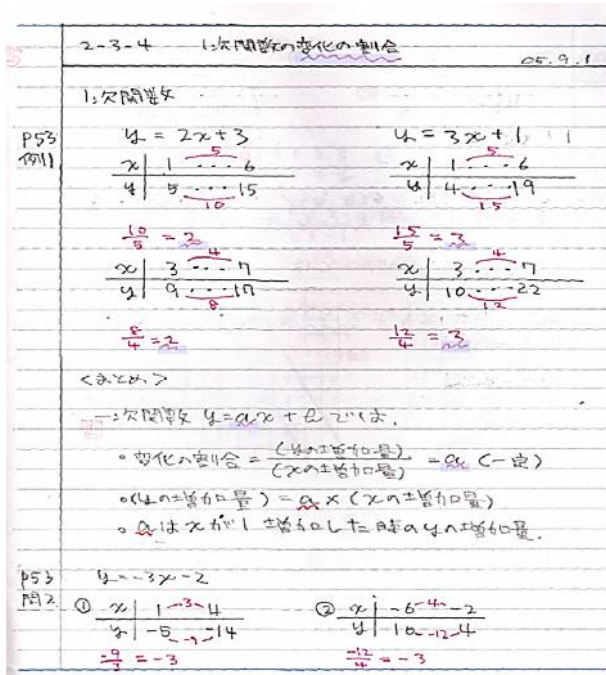 2-3-4 1次関数の変化の割合 05.9.1
1次関数
P53
例1
y = 2x+3
5
x | 1 ... 6
y | 5 ... 15
10
10/5 = 2
4
x | 3 ... 7
y | 9 ... 17
8
8/4 = 2
y = 3x+1
5
x | 1 ... 6
y | 4 ... 19
15
15/5 = 3
4
x | 3 ... 7
y | 10 ... 22
12
12/4 = 3
<まとめ>
一次関数 y=ax+bでは、
・変化の割合 = (yの増加量)/(xの増加量) = a (一定)
・(yの増加量) = a × (xの増加量)
・aはxが1増加した時のyの増加量.
P53
問2
y=-3x-2
① x | 1 3 4
y | -5 -9 -14
-9/3 = -3
② x | -6 4 -2
y | 16 -12 4
-12/4 = -3